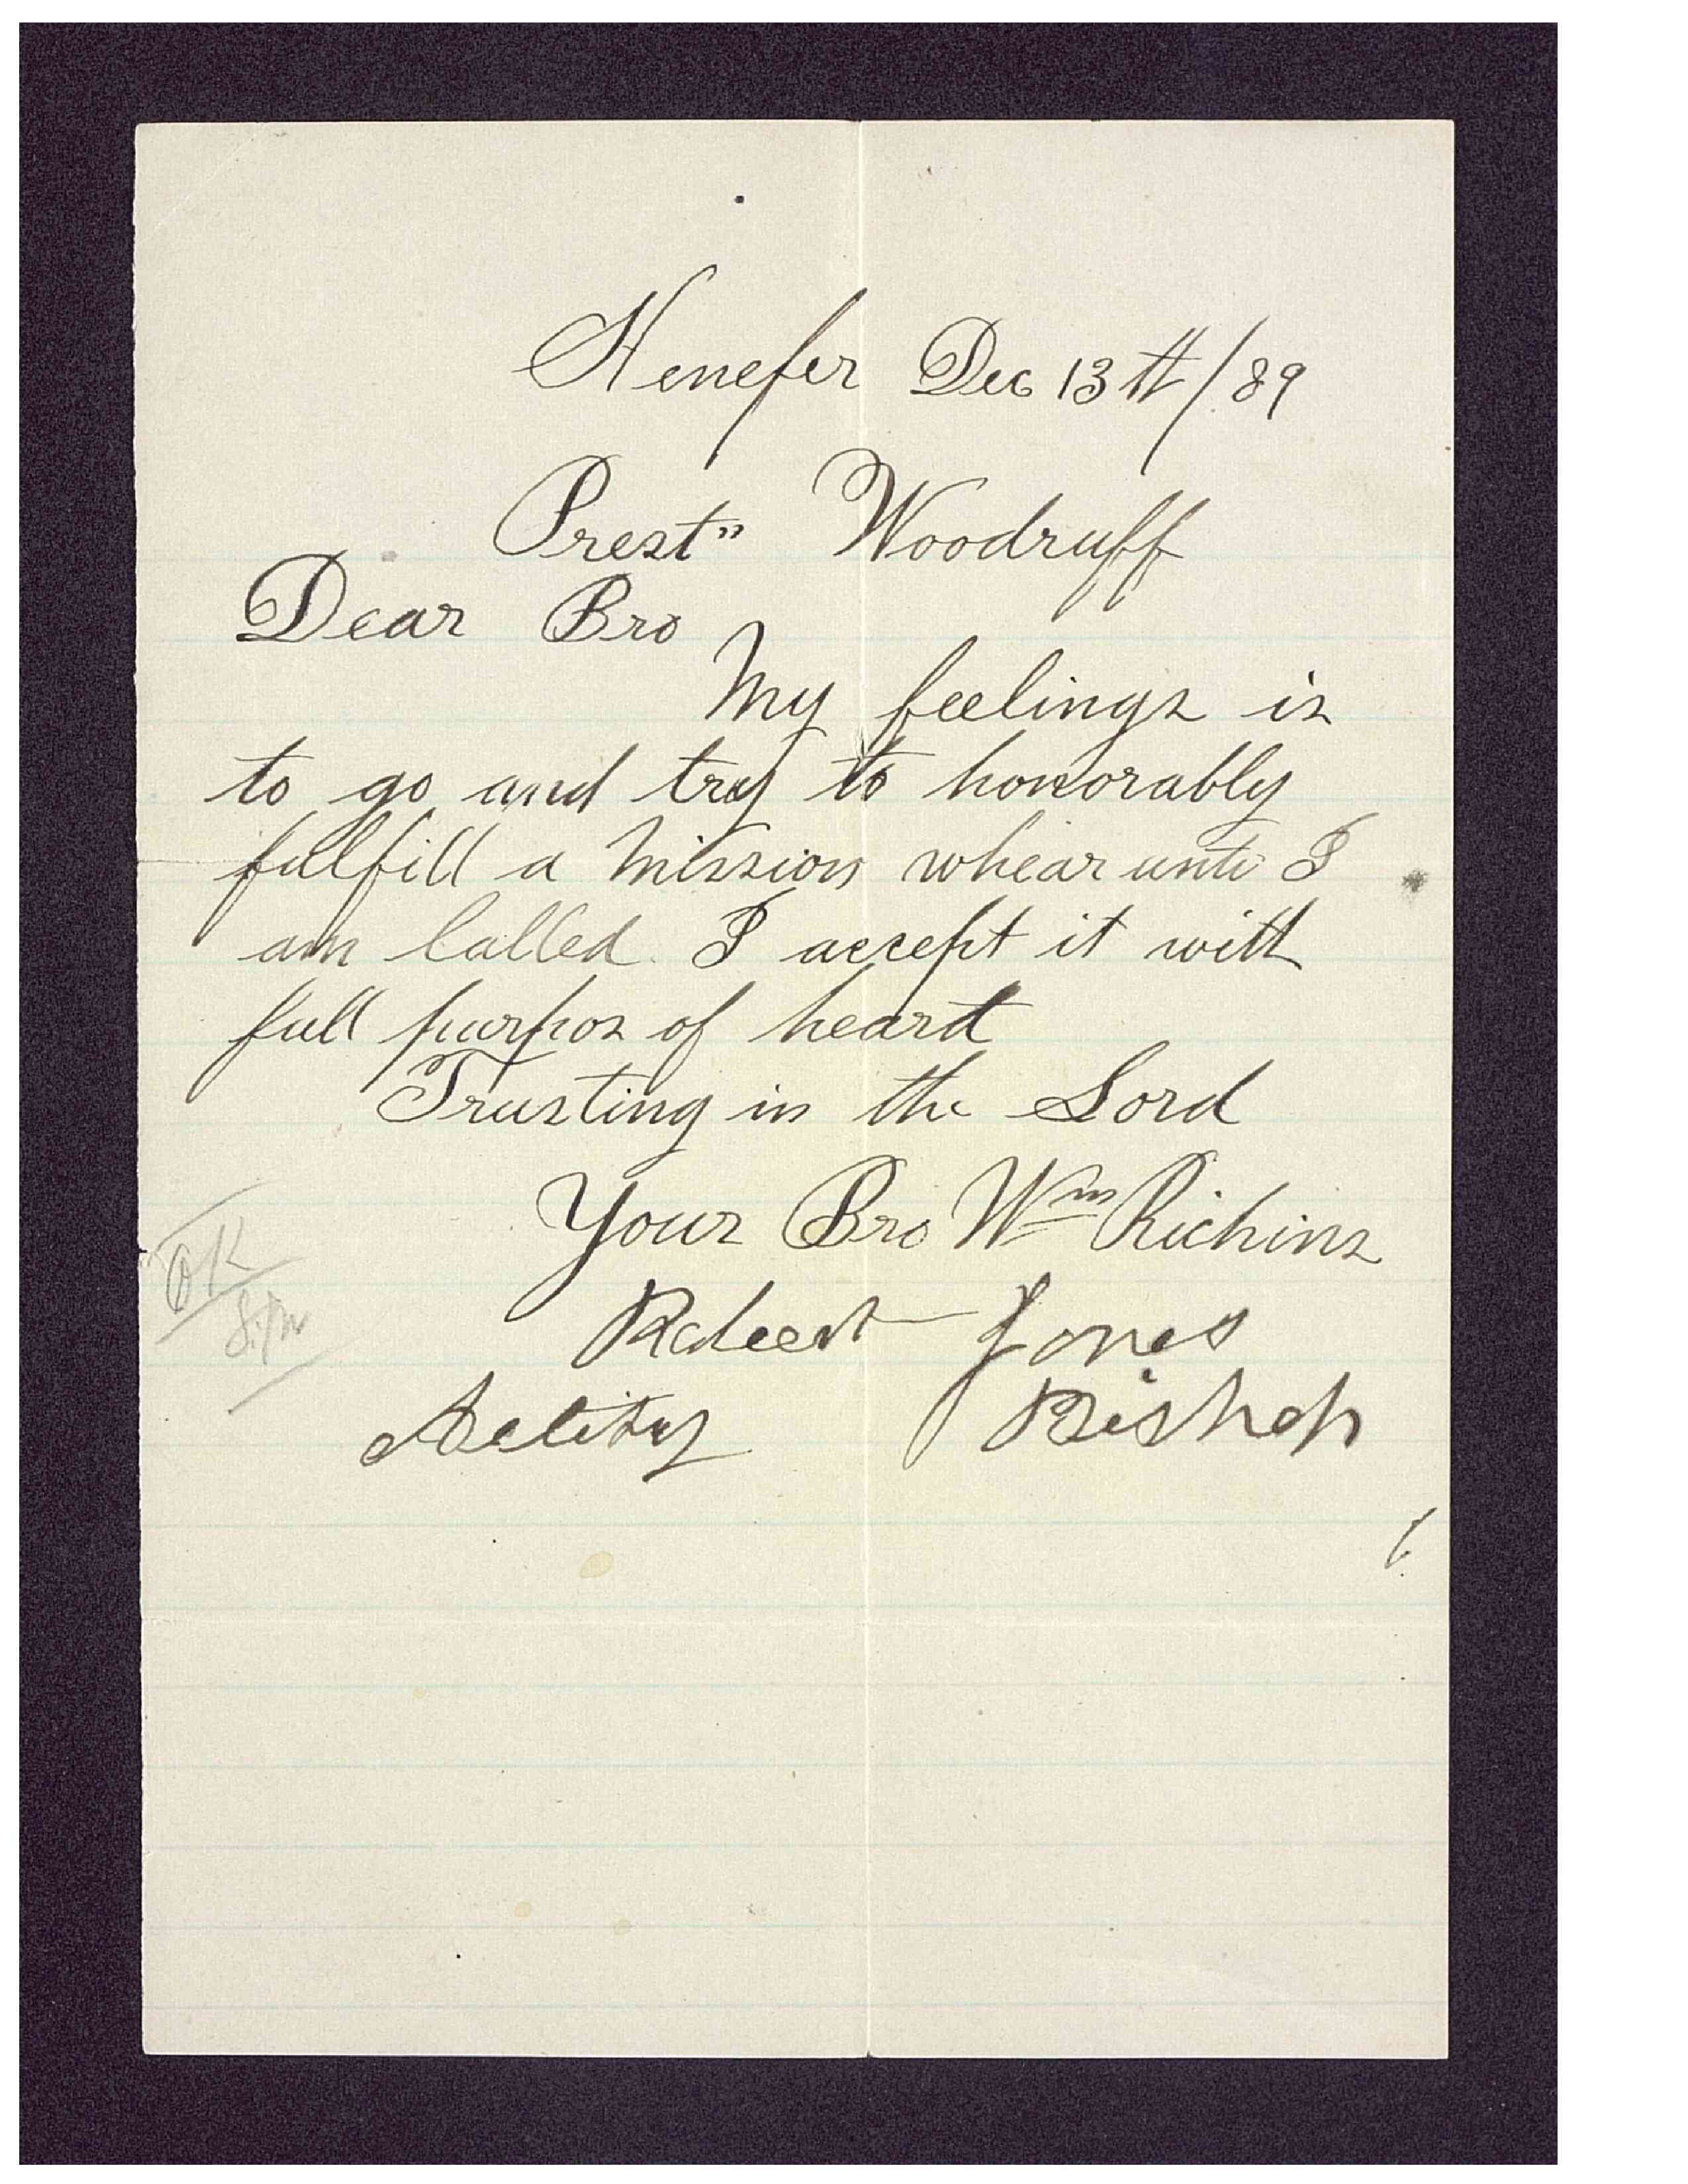 Henefer Dec 13th/89
Prest" Woodruff
Dear Bro
My feelings is
to go and try to honorably
fulfill a Mission whear unto I
am Called. I accept it with
full purpos of heart
Trusting in the Lord
Your Bro Wm Richins
Jones
Bishop
OK